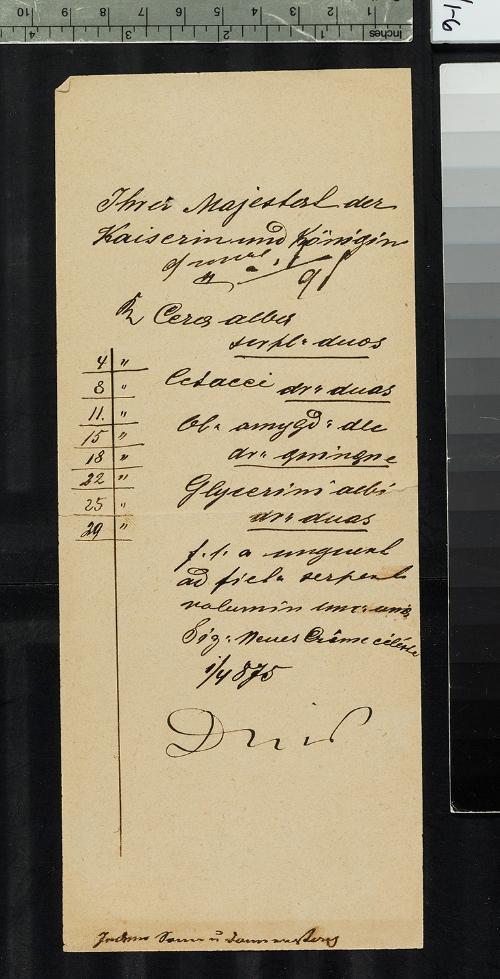 Ihrer Majestät der
Kaiserin und Königin
Rz Cera alba
duos
4 "
Cetacei dr: duas
8 "
11. "
Ol: amygd: dlc
15 "
dr: quinque
18 "
22 "
Glycerini albi
25 "
dr: duas
29 "
f. l. a unguent
ad fict:
volumin unc:
Sig: Neues Crême céleste
1/4 875
Inches 1 2 3 4
1 2 3 4 5 6 7 8 9 10
/1-6